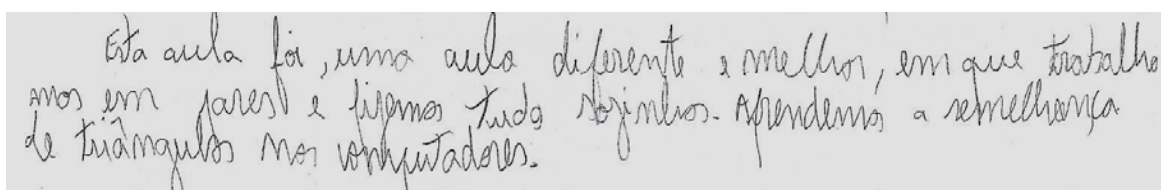 Esta aula foi, uma aula diferente e melhor, em que trabalha
mos em pares e fizemos tudo sozinhos. Aprendemos a semelhança
de triângulos nos computadores.